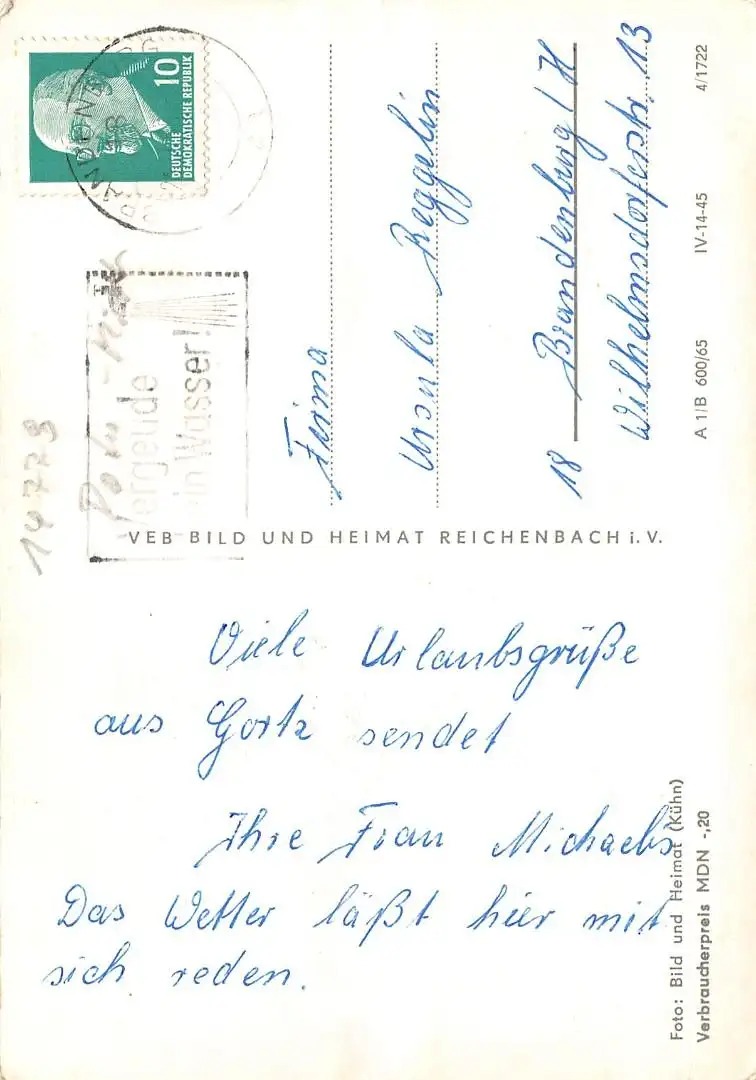 Viele Urlaubsgrüße
aus Gortz sendet
Ihre Frau Michaelis
Das Wetter läßt hier mit
sich reden.
VEB BILD UND HEIMAT REICHENBACH i. V.
Firma
Ursula Reggelin
18 Brandenburg/H
Wilhelmsdorferstr. 13
10
DEUTSCHE
DEMOKRATISCHE REPUBLIK
BRANDENBURG
Vergeude
kein Wasser!
14773
A 1/B 600/65 IV-14-45 4/1722
Foto: Bild und Heimat (Kühn)
Verbraucherpreis MDN -,20